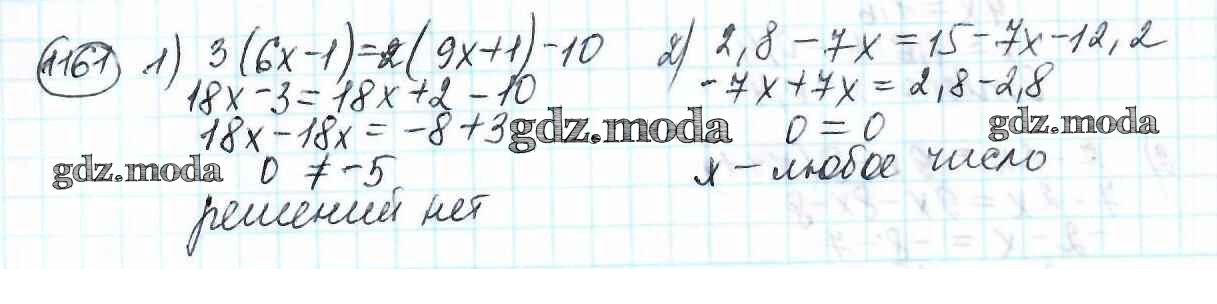 1161 1) 3(6x-1)=2(9x+1)-10
18x-3=18x+2-10
18x-18x=-8+3
0 ≠ -5
решений нет
2) 2,8-7x=15-7x-12,2
-7x+7x=2,8-2,8
0=0
x - любое число
gdz.moda
gdz.moda
gdz.moda